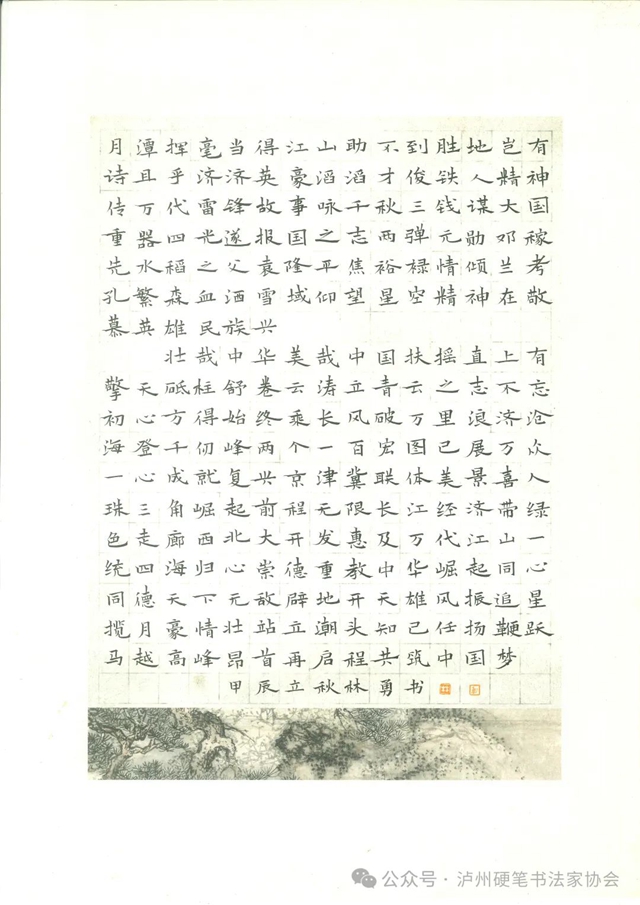 月潭挥毫当得江山助不到胜地岂有
诗且乎济济英豪滔滔才俊铁人精神
传万代雷锋故事咏千秋三钱谋大国
重器四光遂报国之志两弹元勋邓稼
先水稻之父袁隆平焦裕禄情倾兰考
孔繁森血洒雪域仰望星空精神在敬
慕英雄民族兴
壮哉中华美哉中国扶摇直上有
擎天砥柱舒卷云涛立青云之志不忘
初心方得始终乘长风破万里浪济沧
海登千仞峰两个一百宏图已展万众
一心成就复兴京津冀联体美景喜人
珠三角崛起前程无限长江经济带绿
色走廊西北大开发惠及万代江山一
统四海归心崇德重教中华崛起同心
同德天下无敌辟地开天雄风振追星
揽月豪情壮站立潮头知己任扬鞭跃
马越高峰昂首再启程共筑中国梦
甲辰立秋林勇书
公众号·泸州硬笔书法家协会